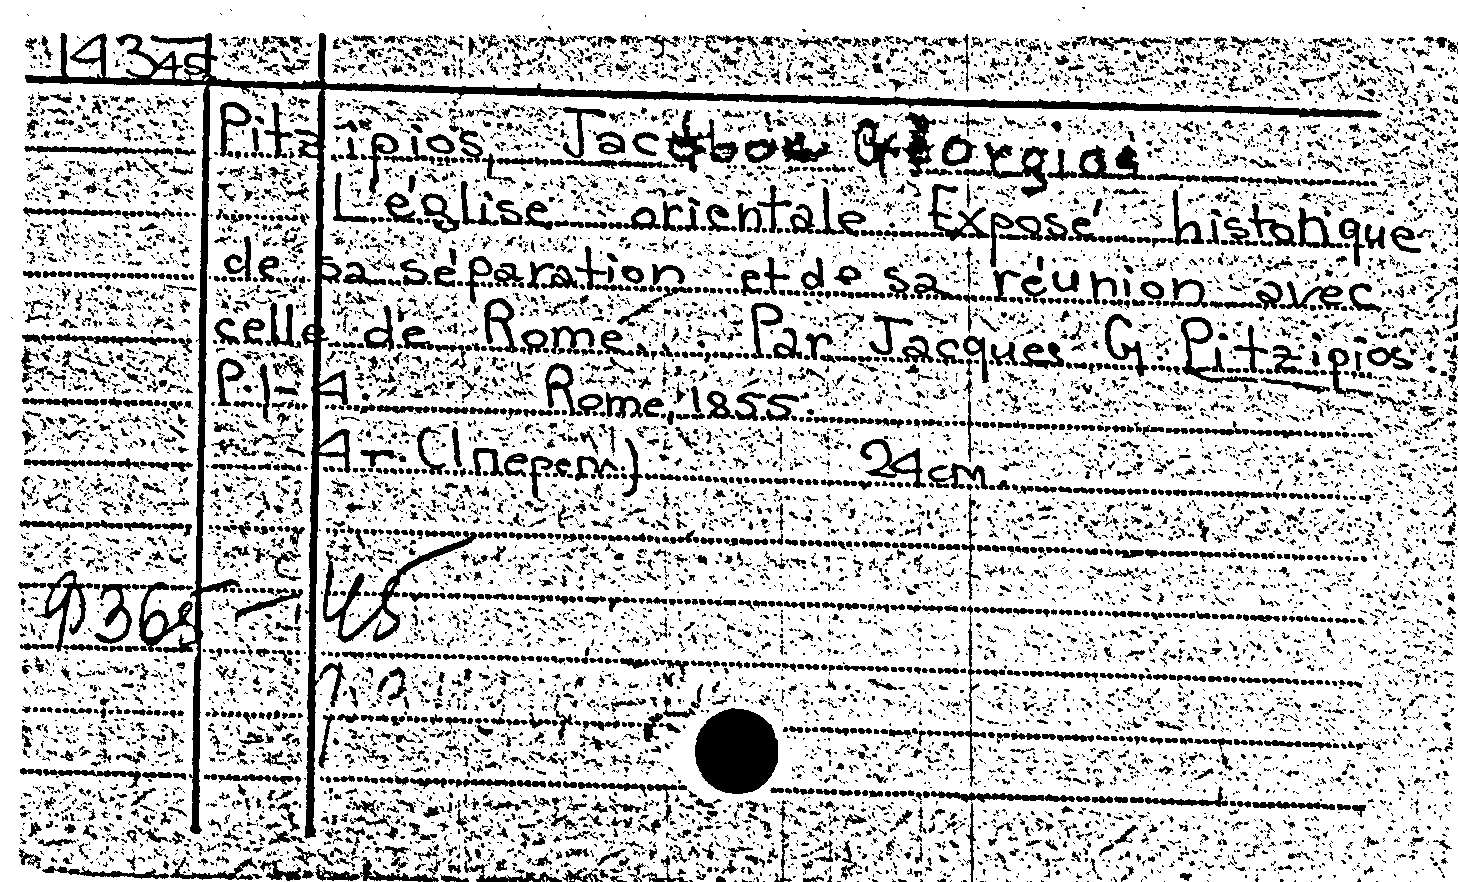 14345
Pitzipios, Jacobos Georgios
L'église orientale. Exposé historique
de sa séparation et de sa réunion avec
celle de Rome. Par Jacques G. Pitzipios
P. 1-4. Rome, 1855.
4 т. (1 перепл.) 24 cm.